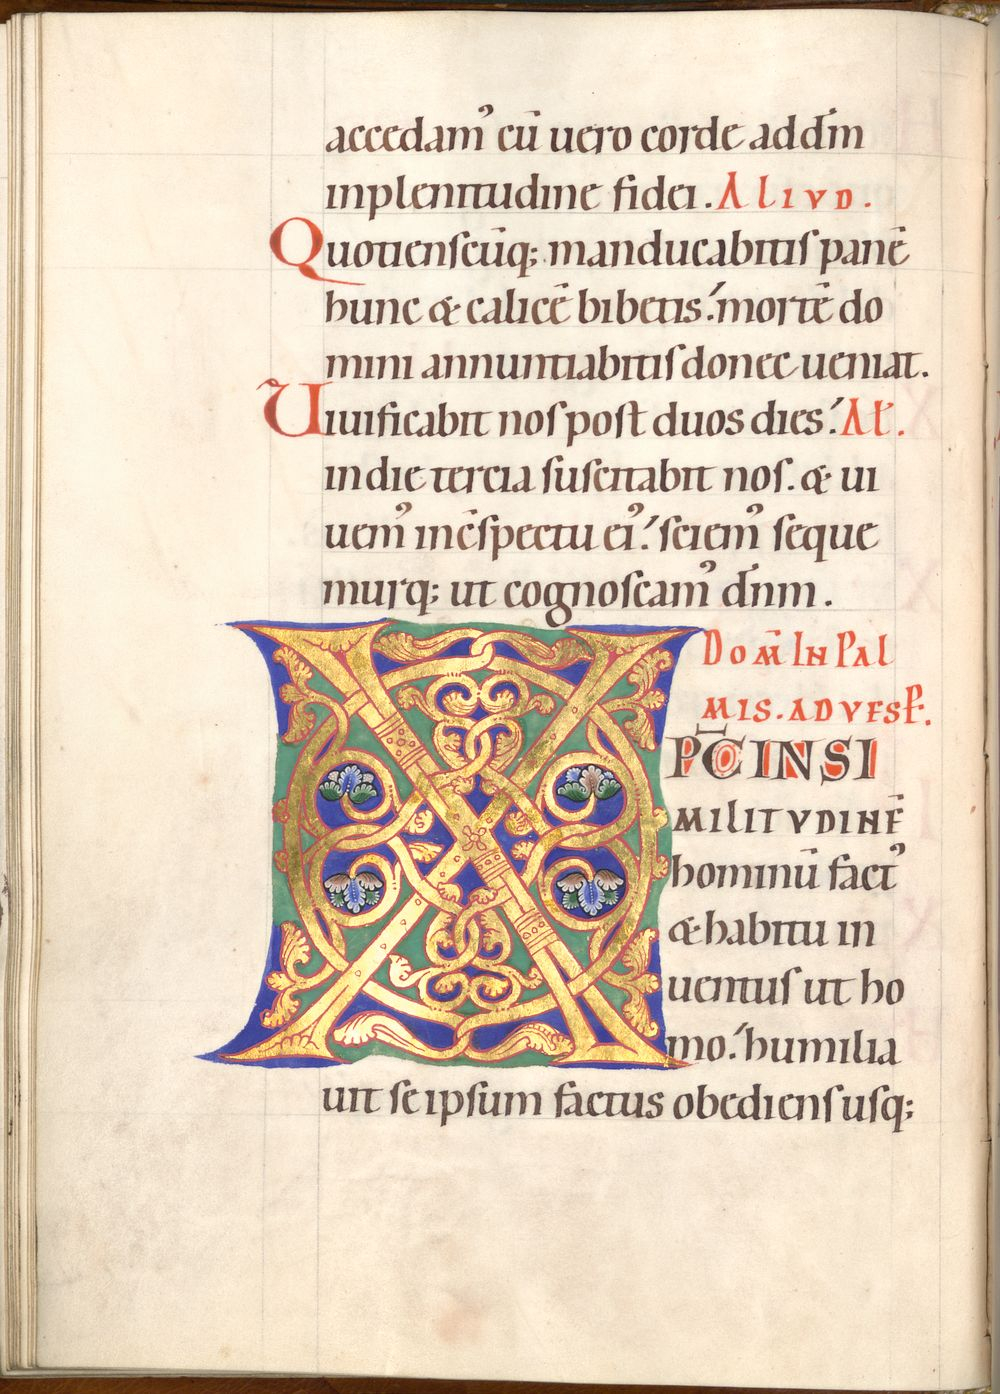 accedam᾽ cū uero corde addm̄
inplenitudine fidei. Aliud.
Quotienscūq; manducabitis panē
hunc & calicē bibetis. mortē do
mini annuntiabitis donec ueniat.
Uiuificabit nos post duos dies. Al.
in die tercia suscitabit nos. & ui
uem᾽ in c̄spectu ei᾽. sciem᾽ seque
murq; ut cognoscam᾽ dn̄m.
Dom̄ In Pal
mis. ad vesp.
XPC̄ IN SI
MILITVDINĒ
hominū fact᾽
& habitu in
uentus ut ho
mo. humilia
uit se ipsum factus obediens usq;